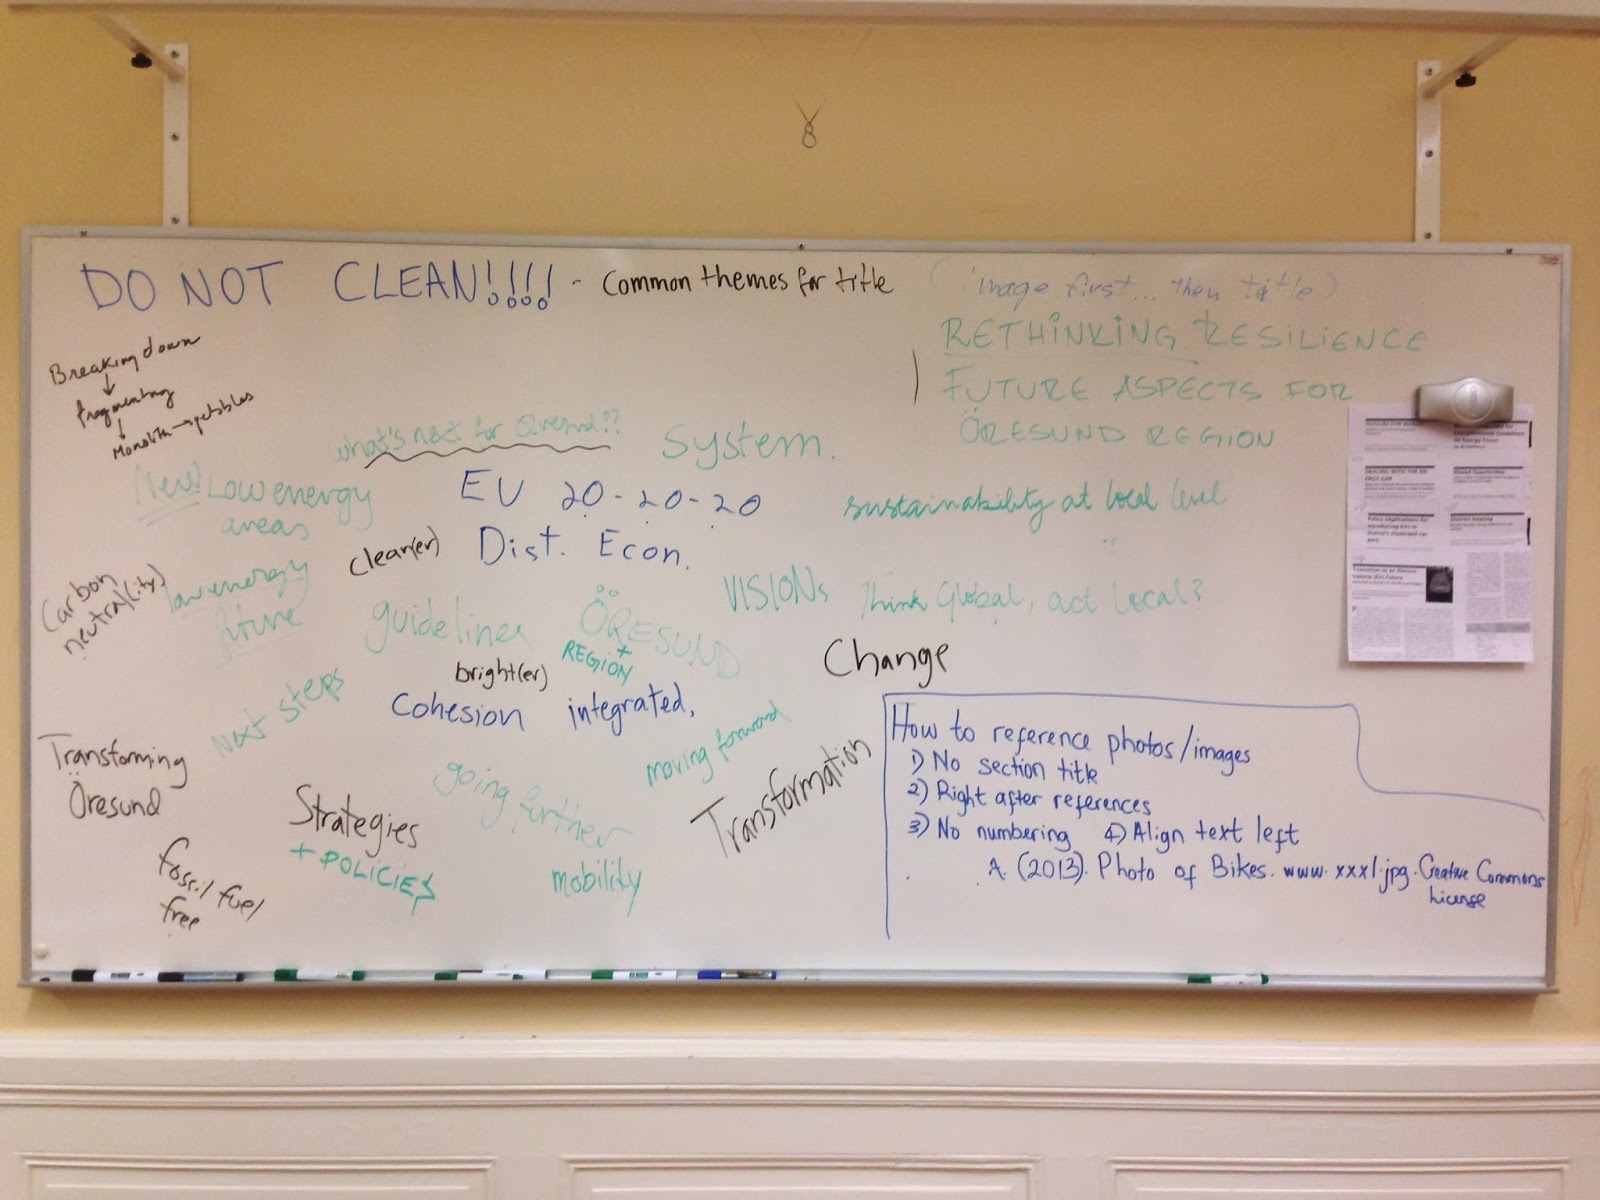 DO NOT CLEAN!!!! - Common themes for title
(image first... then title)
RETHINKING RESILIENCE
FUTURE ASPECTS FOR
ÖRESUND REGION
Breaking down
↓
fragmenting
↓
Monolith → pebbles
what's next for Öresund??
System.
New Low energy
areas
EU 20-20-20
sustainability at local level
clean(er)
Dist. Econ.
Carbon
neutral(ity)
low energy
future
guidelines
ÖRESUND
+
REGION
VISIONs
Think Global, act local?
Change
bright(er)
Next steps
Cohesion
integrated,
moving forward
Transforming
Öresund
going further
Transformation
Strategies
+ POLICIES
mobility
fossil fuel
free
How to reference photos/images
1) No section title
2) Right after references
3) No numbering 4) Align text left
A. (2013). Photo of Bikes. www.xxx1.jpg. Creative Commons
License
DEALING WITH THE EN
ERGY GAP
Policy implications for
introducing EVs in
Malmö's municipal car
park
District heating
Transition to an Electric
Vehicle (EV) Future